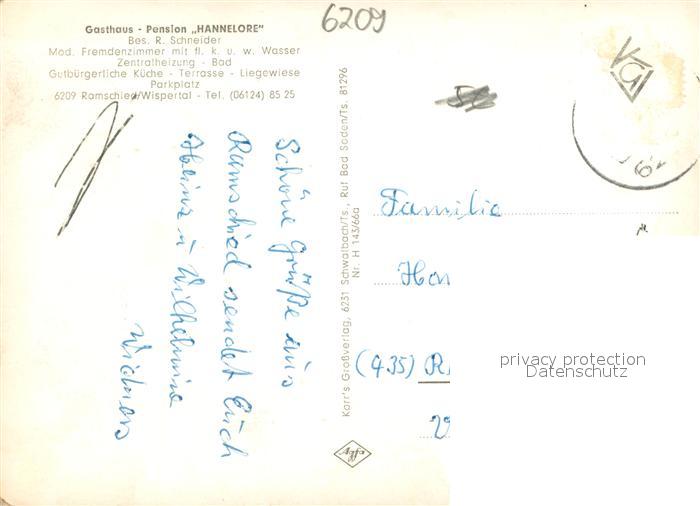 6209
Gasthaus - Pension „HANNELORE"
Bes. R. Schneider
Mod. Fremdenzimmer mit fl. k. u. w. Wasser
Zentralheizung - Bad
Gutbürgerliche Küche - Terrasse - Liegewiese
Parkplatz
6209 Ramschied/Wispertal - Tel. (06124) 85 25
Schöne Grüße aus
Ramschied sendet Euch
Heinz u Wilhelmine
Widmers
Karr's Großverlag, 6231 Schwalbach/Ts., Ruf Bad Soden/Ts. 81296
Nr. H 143/66a
Agfa
Familie
Han
(435) R
privacy protection
Datenschutz